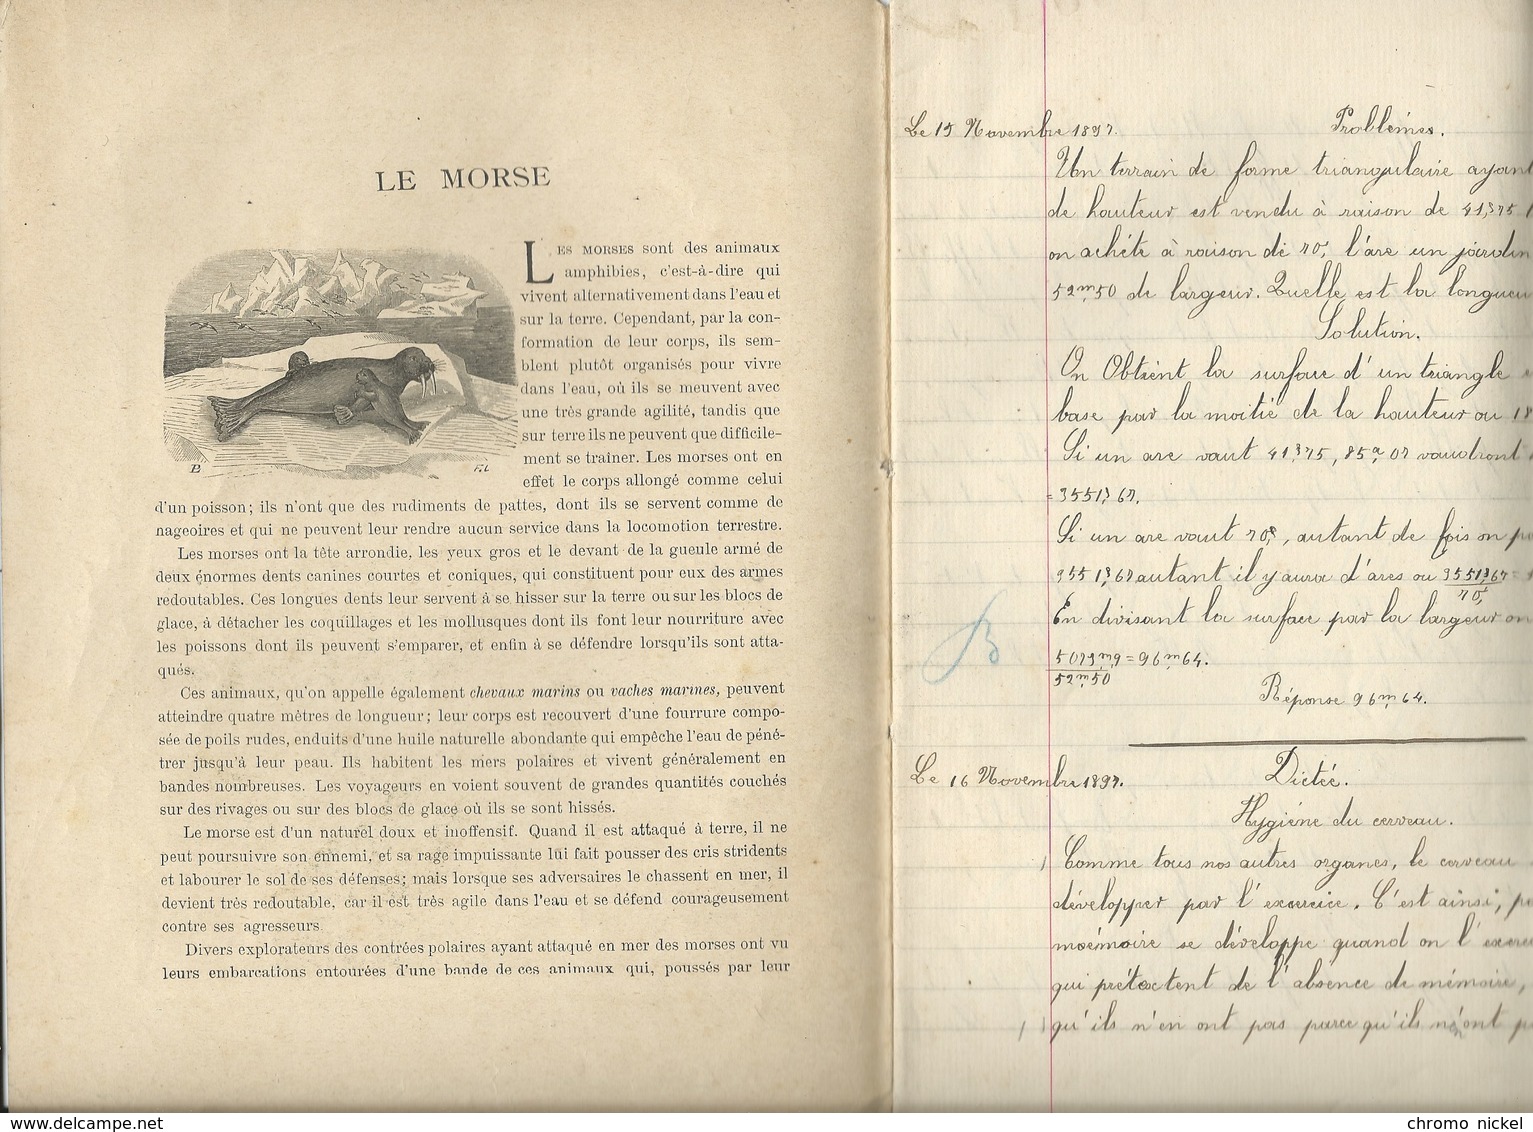 LE MORSE
LES MORSES sont des animaux
amphibies, c'est-à-dire qui
vivent alternativement dans l'eau et
sur la terre. Cependant, par la con-
formation de leur corps, ils sem-
blent plutôt organisés pour vivre
dans l'eau, où ils se meuvent avec
une très grande agilité, tandis que
sur terre ils ne peuvent que difficile-
ment se traîner. Les morses ont en
effet le corps allongé comme celui
d'un poisson; ils n'ont que des rudiments de pattes, dont ils se servent comme de
nageoires et qui ne peuvent leur rendre aucun service dans la locomotion terrestre.
Les morses ont la tête arrondie, les yeux gros et le devant de la gueule armé de
deux énormes dents canines courtes et coniques, qui constituent pour eux des armes
redoutables. Ces longues dents leur servent à se hisser sur la terre ou sur les blocs de
glace, à détacher les coquillages et les mollusques dont ils font leur nourriture avec
les poissons dont ils peuvent s'emparer, et enfin à se défendre lorsqu'ils sont atta-
qués.
Ces animaux, qu'on appelle également chevaux marins ou vaches marines, peuvent
atteindre quatre mètres de longueur; leur corps est recouvert d'une fourrure compo-
sée de poils rudes, enduits d'une huile naturelle abondante qui empêche l'eau de péné-
trer jusqu'à leur peau. Ils habitent les mers polaires et vivent généralement en
bandes nombreuses. Les voyageurs en voient souvent de grandes quantités couchés
sur des rivages ou sur des blocs de glace où ils se sont hissés.
Le morse est d'un naturel doux et inoffensif. Quand il est attaqué à terre, il ne
peut poursuivre son ennemi, et sa rage impuissante lui fait pousser des cris stridents
et labourer le sol de ses défenses; mais lorsque ses adversaires le chassent en mer, il
devient très redoutable, car il est très agile dans l'eau et se défend courageusement
contre ses agresseurs.
Divers explorateurs des contrées polaires ayant attaqué en mer des morses ont vu
leurs embarcations entourées d'une bande de ces animaux qui, poussés par leur
Le 15 Novembre 1897. Problèmes.
Un terrain de forme triangulaire ayant
de hauteur est vendu à raison de 41,f75
on achète à raison de 70f, l'are un jardin
52m,50 de largeur. Quelle est la longueur
Solution.
On Obtient la surface d'un triangle
base par la moitié de la hauteur ou 18
Si un are vaut 41f,75, 85a,07 vaudront
= 3551f,67.
Si un are vaut 70f, autant de fois on
3551f,67 autant il y aura d'ares ou 3551f,67 =
70f
En divisant la surface par la largeur on
5073m,9 = 96m,64.
52m,50
Réponse 96m,64.
B
Le 16 Novembre 1897. Dictée.
Hygiène du cerveau.
Comme tous nos autres organes, le cerveau
développer par l'exercice. C'est ainsi,
moémoire se développe quand on l'
qui prétextent de l'absence de mémoire,
qu'ils n'en ont pas parce qu'ils n'ont
chromo nickel
www.delcampe.net